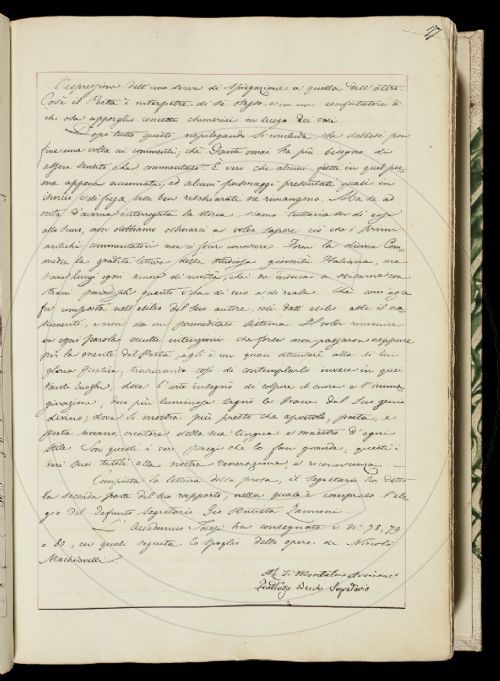 l'espressione dell'uno serve di spiegazione a quella dell'altro.
Così il Poeta è interprete di se stesso, e in un confutatore di
chi osa apporgli concetti chimerici in luogo dei veri.
Dopo tutto questo, riepilogando si conclude, che debbasi por
fine una volta ai commenti; che Dante omai ha più bisogno di
essere sentito che commentato. È vero che alcuni fatti in quel poe
ma appena accennati, ed alcuni personaggi presentati quasi in
iscorcio e di fuga non ben rischiarati ne rimangono. Ma se ad
onta d'averne interrogata la storia siamo tuttavia di essi
allo scuro, non dobbiamo ostinarci a voler sapere ciò che i primi
antichi commentatori non ci fecer conoscere. Formi la divina Com
media la gradita lettura della studiosa gioventù Italiana, ma
lungi ogni amore di novità, che ne induca a
strani quanto v'ha di vero e di reale. Che
fu composta nell'esilio dal suo autore, coll'esilio ebbe il na
scimento, e non da un premeditato sistema. Il voler rinvenire
in ogni parola occulte intenzioni che forse non passaron neppure
per la mente del Poeta, egli è un quasi attentare alla di lui
gloria Poetica, trascurando così di contemplarlo invece in quei
tanti luoghi, dove l'arte insegnò di colpire il cuore e l'imma
ginazione, dove più luminose segnò le tracce del suo genio
divino; dove si mostra più presto che apostolo, poeta, e
poeta sovrano, creatore della sua lingua e maestro d'ogni
stile. Son questi i veri pregi che lo fan grande, questi i
veri suoi titoli alla nostra venerazione, e riconoscenza. —
Compiuta la lettura della prosa, il Segretario ha letto
la seconda parte del suo rapporto, nella quale è compreso l'elo
gio del defunto Segretario Gio Batista Zannoni.
L'Accademico ha consegnato i N.i 78, 79
e 80, nei quali seguita lo spoglio delle opere di Niccolò
Machiavelli.
Segretario